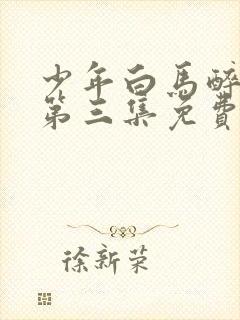 少年白馬醉
第三集免費
徐新荣